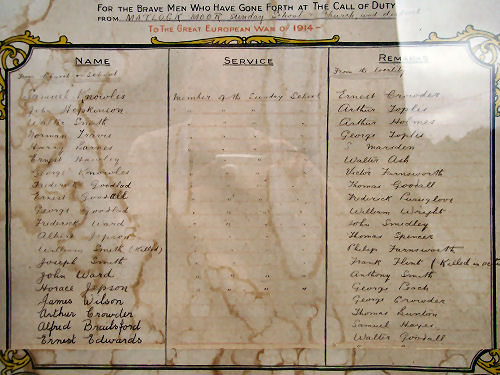 FOR THE BRAVE MEN WHO HAVE GONE FORTH AT THE CALL OF DUTY
FROM MATLOCK MOOR Sunday School & Church and district
TO THE GREAT EUROPEAN WAR OF 1914-
NAME SERVICE REMARKS
From School From the locality
Samuel Knowles Member of the Sunday School Ernest Crowder
Hopkinson " " Arthur Toples
Walter Smith " " Arthur Holmes
Norman Travis " " George Toples
Harry Barnes " " S. Marsden
Ernest Hawley " " Walter Ash
George Knowles " " Victor Farnsworth
Frederick Goodlad " " Thomas Goodall
Ernest Goodall " " Frederick
George Goodlad " " William Wright
Frederick Ward " " John Smedley
Albert Jepson " " Thomas Spencer
William Smith (Killed) " " Philip Farnsworth
Joseph Smith " " Frank Flint (Killed in
John Ward " " Anthony Smith
Horace Jepson " " George Peach
James Wilson " " George Crowder
Arthur Crowder " " Thomas
Alfred Brailsford " " Samuel Hayes
Ernest Edwards " " Walter Goodall